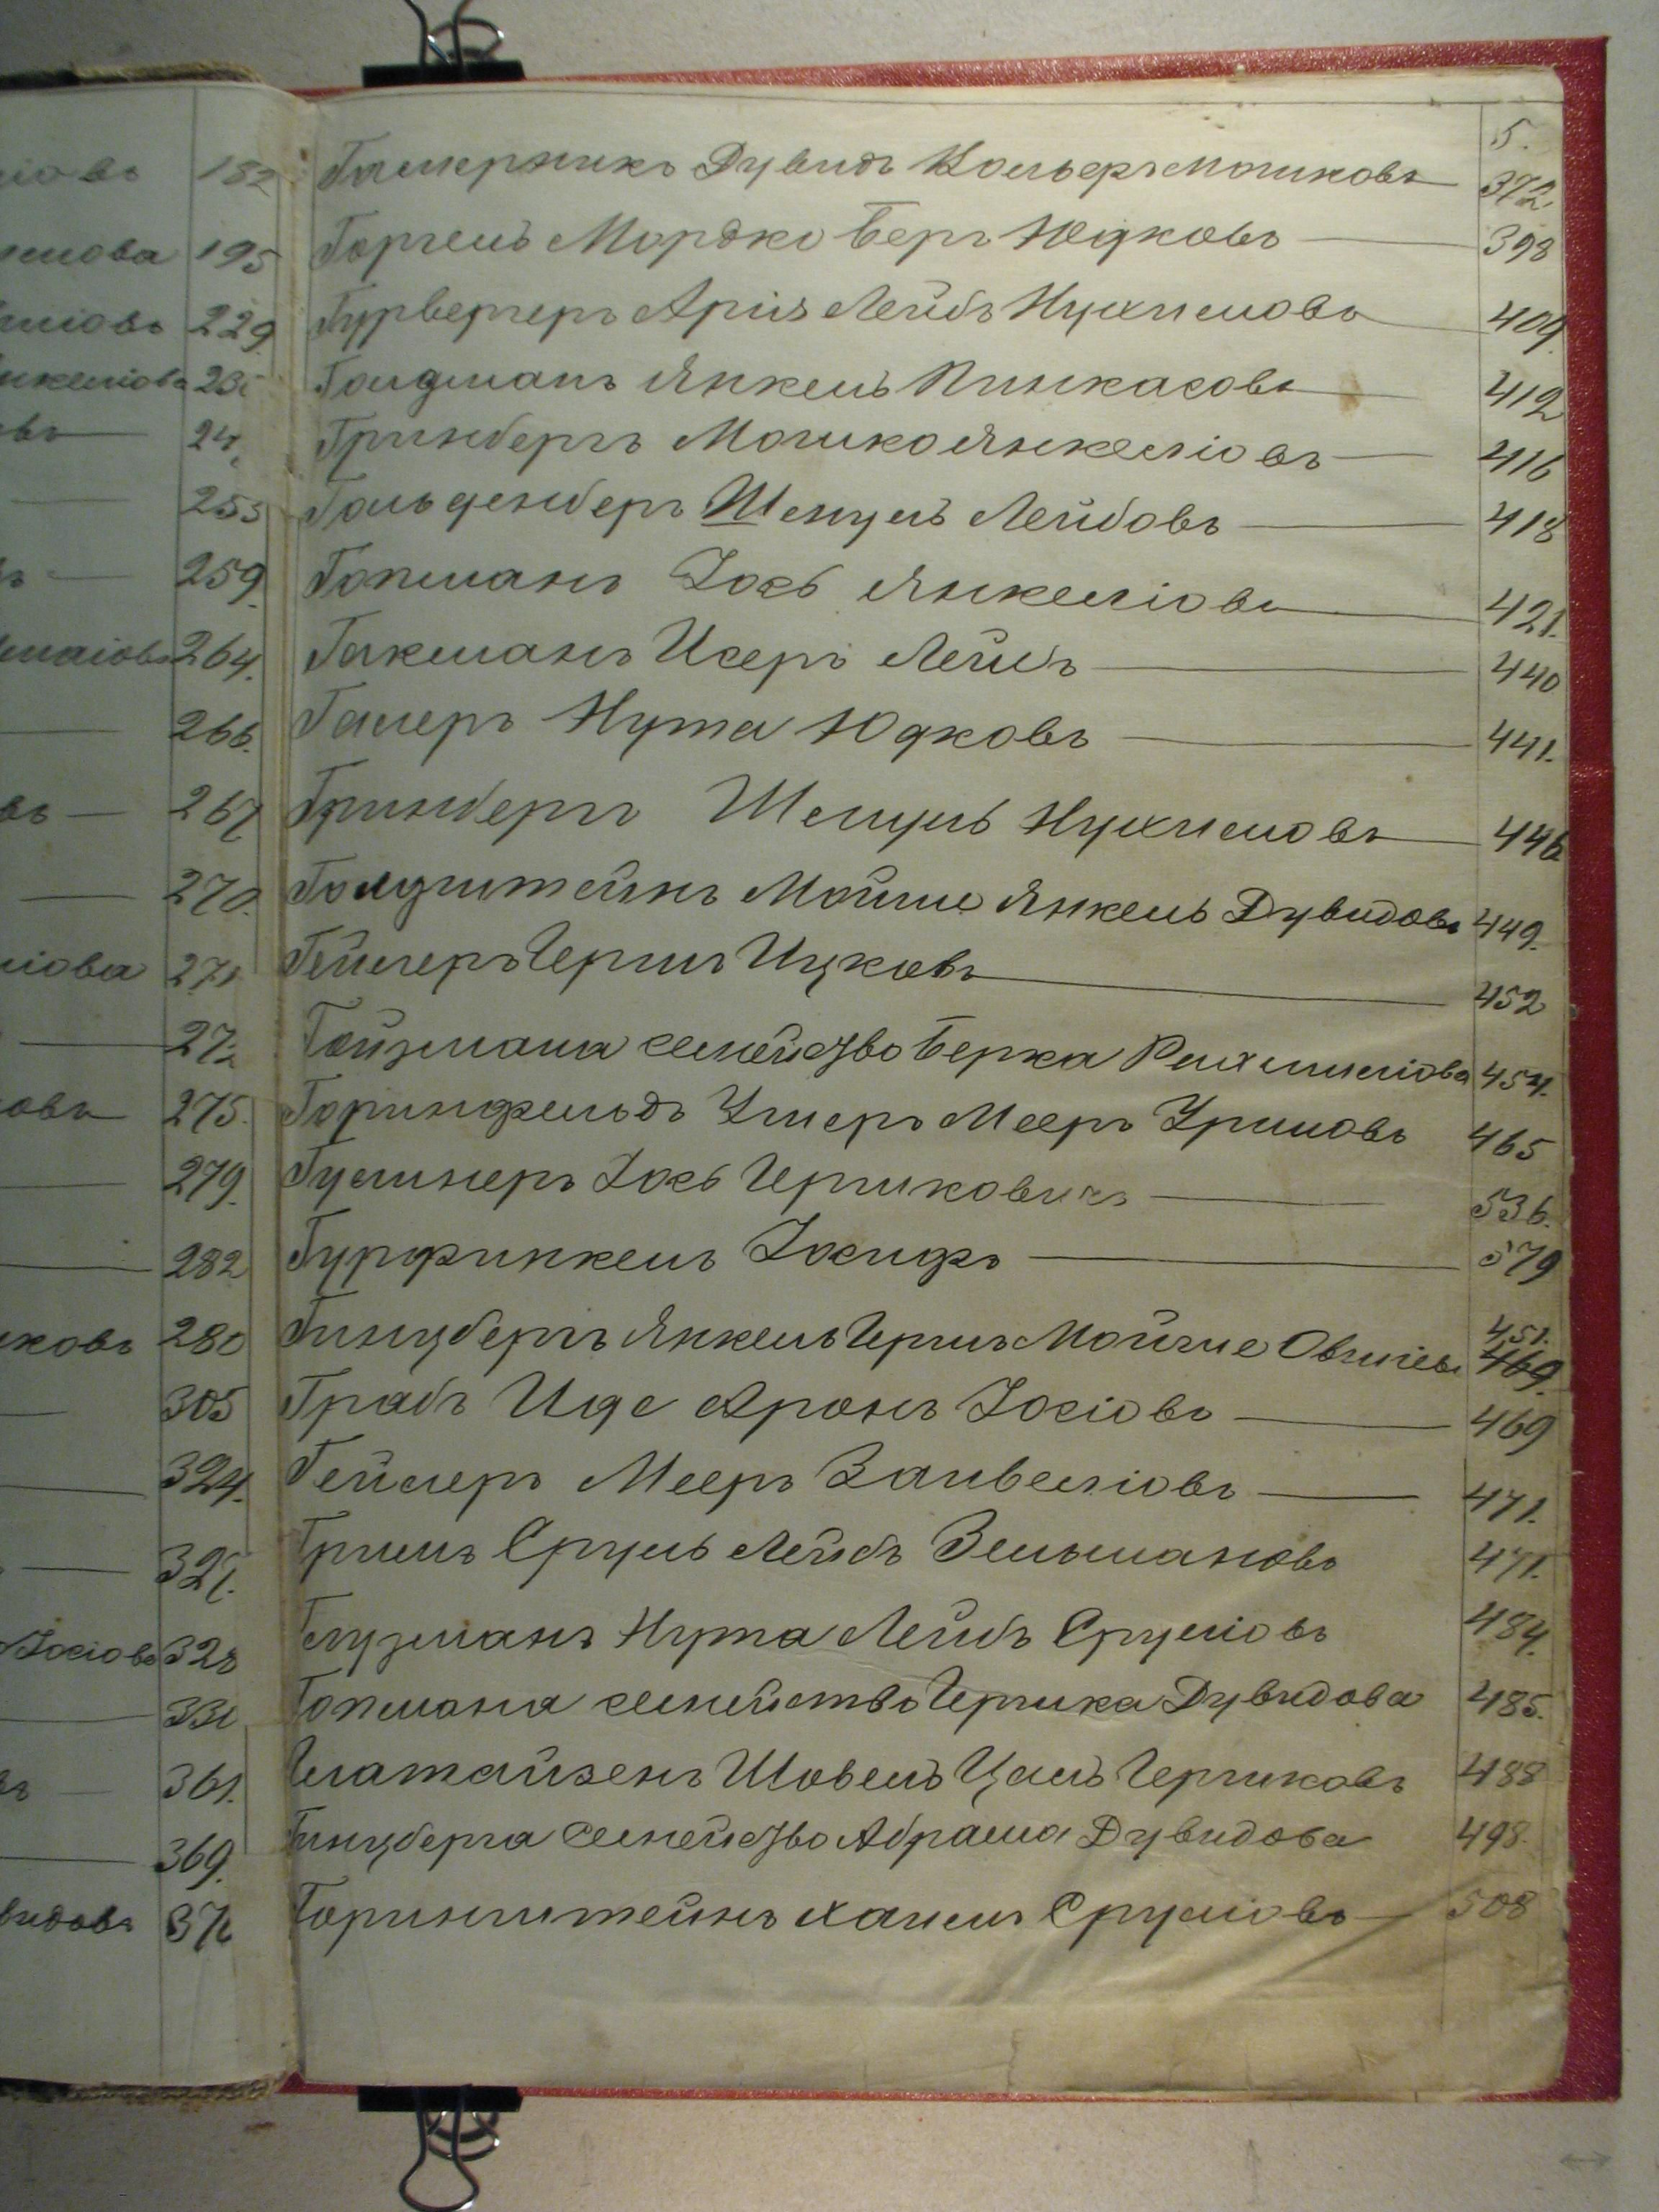 іовъ 182
мова 195
ліовъ 229.
нкеліовъ 23
въ 24
253
259.
маіовъ 264.
266.
въ — 267.
270.
ліова 271.
272
овъ 275.
279.
282
ковъ 280
305
324.
327.
Іосіовъ 328
331
361.
369.
видовъ 371
5.
Галперникъ Дувидъ Вольеръ Мошковъ 372
Горгель Мордко Беръ Юдковъ — 398
Гурвергеръ Арія Лейбъ Нухимовъ 409.
Голдманъ Янкель Пинкасовъ 412
Гринбергъ Мошко Янкеліовъ — 416
Гольденберъ Шмуль Лейбовъ — 418
Гопманъ Іосъ Янкеліовъ 421.
Гакманъ Исеръ Лейбъ — 440
Галеръ Нута Юдковъ — 441.
Гринбергъ Шмуль Нухимовъ 446
Голдштейнъ Мойше Янкель Дувидовъ 449.
Гейлеръ Гершъ Ицковъ 452
Гойзмана семейство Берка Рахмиліова 454.
Горинфельдъ Ушеръ Мееръ Уримовъ 465
Гуслнеръ Іосъ Гершковичъ — 536.
Гурфинкель Іосифъ — 579
Гинцбергъ Янкель Гершъ Мойше Овшіевъ 451. 469.
Грабъ Иде Аронъ Іосіовъ — 469
Гейлеръ Мееръ Занвеліовъ — 471.
Гриль Сруль Лейбъ Зельмановъ 471.
Глузманъ Нута Лейбъ Сруліовъ 484.
Гопмана семейство Гершка Дувидова 485.
Глатайзенъ Шовель Цаль Гершковъ 488
Гинцберга семейство Абрама Дувидова 498.
Горинштейнъ Хаимъ Сруліовъ — 508